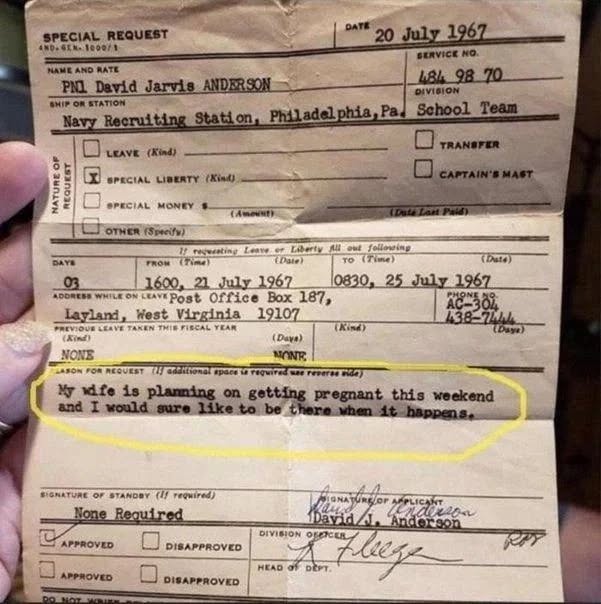 SPECIAL REQUEST
DATE 20 July 1967
SERVICE NO.
NAME AND RATE
484 98 70
PN1 David Jarvis ANDERSON
DIVISION
SHIP OR STATION
Navy Recruiting Station, Philadelphia, Pa. School Team
NATURE OF REQUEST
LEAVE (Kind)
TRANSFER
X SPECIAL LIBERTY (Kind)
CAPTAIN'S MAST
SPECIAL MONEY $
(Amount) (Date Last Paid)
OTHER (Specify)
If requesting Leave or Liberty fill out following
DAYS FROM (Time) (Date) TO (Time) (Date)
03 1600, 21 July 1967 0830, 25 July 1967
ADDRESS WHILE ON LEAVE Post Office Box 187, PHONE NO.
AC-304
Layland, West Virginia 19107 438-7444
PREVIOUS LEAVE TAKEN THIS FISCAL YEAR
(Kind) (Days) (Kind) (Days)
NONE NONE
REASON FOR REQUEST (If additional space is required use reverse side)
My wife is planning on getting pregnant this weekend
and I would sure like to be there when it happens.
SIGNATURE OF STANDBY (If required) SIGNATURE OF APPLICANT
None Required David J. Anderson
David J. Anderson
APPROVED DISAPPROVED DIVISION OFFICER
HEAD OF DEPT.
APPROVED DISAPPROVED